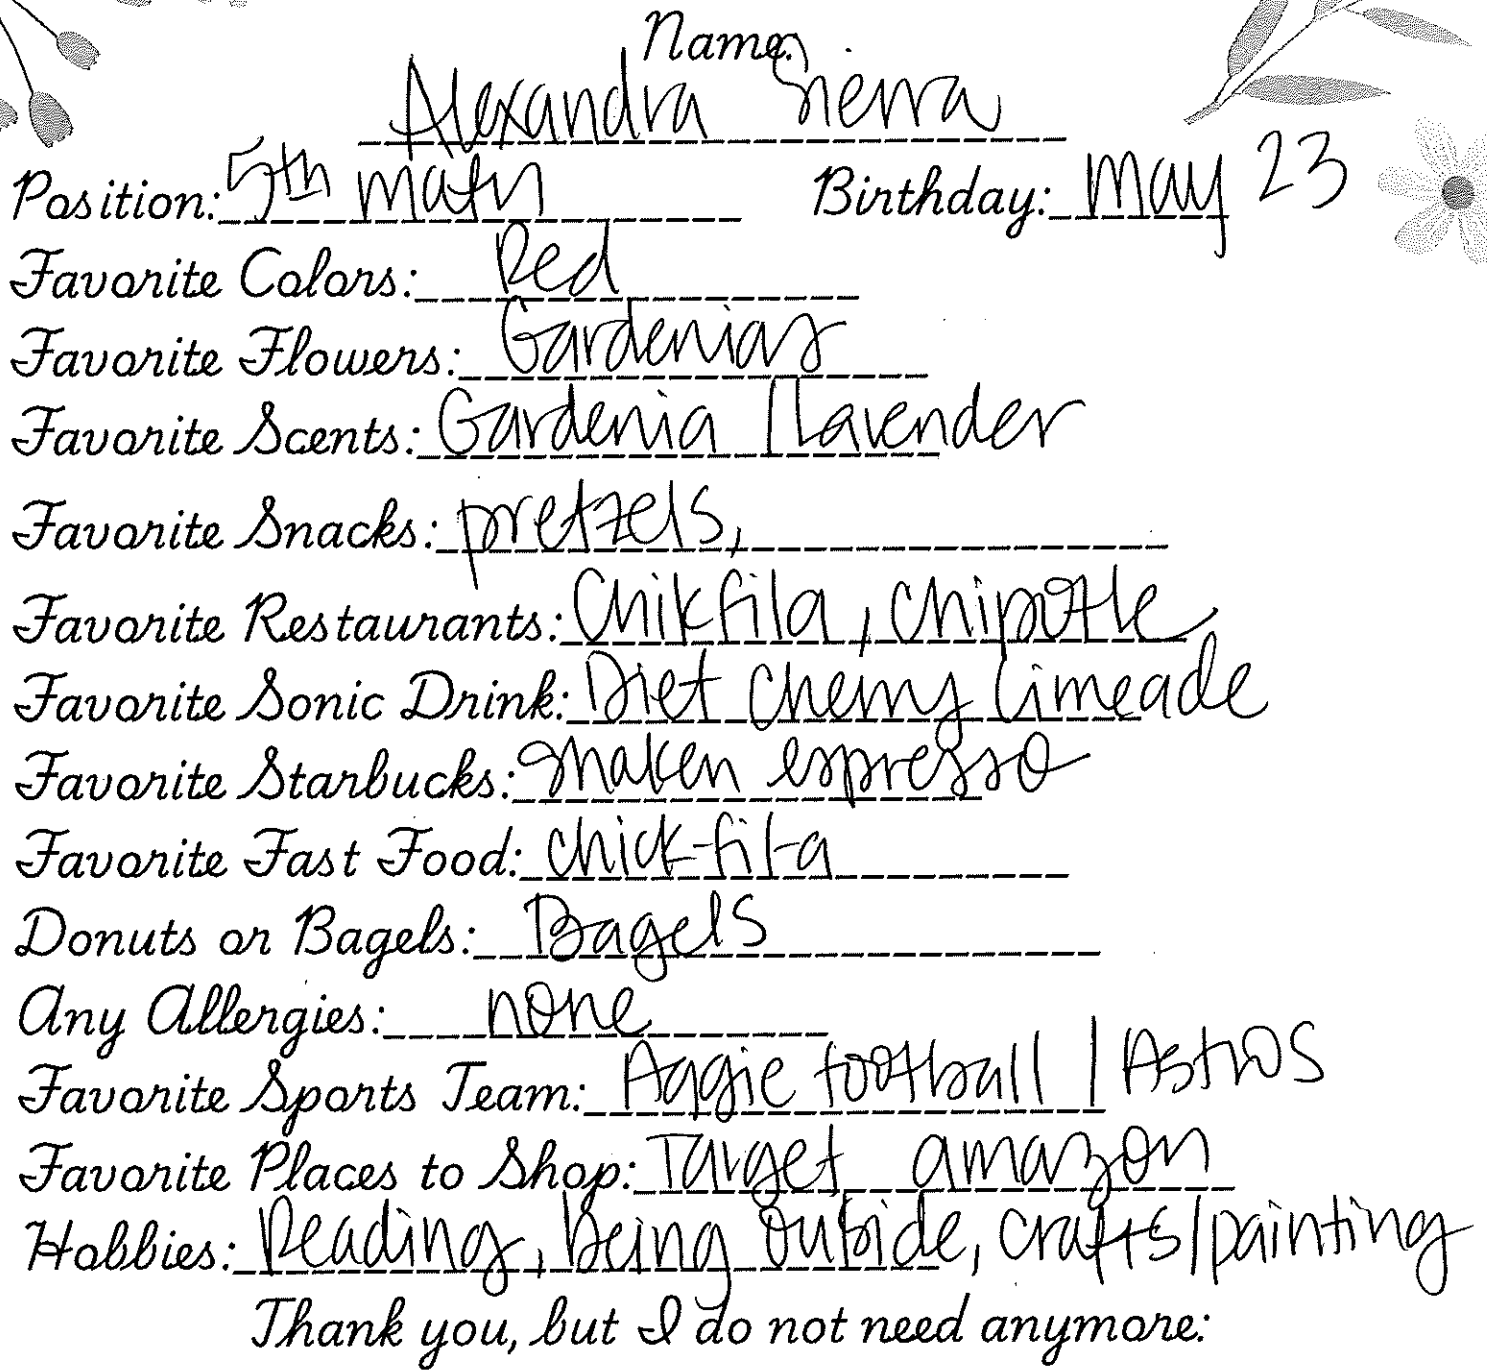 Name:
Alexandra Sierra
Position: 5th math Birthday: May 23
Favorite Colors: Red
Favorite Flowers: Gardenias
Favorite Scents: Gardenia / Lavender
Favorite Snacks: pretzels,
Favorite Restaurants: Chikfila, chipotle
Favorite Sonic Drink: Diet Cherry Limeade
Favorite Starbucks: Shaken espresso
Favorite Fast Food: chick-fil-a
Donuts or Bagels: Bagels
Any Allergies: none
Favorite Sports Team: Aggie football / Astros
Favorite Places to Shop: Target amazon
Hobbies: Reading, being outside, crafts/painting
Thank you, but I do not need anymore: